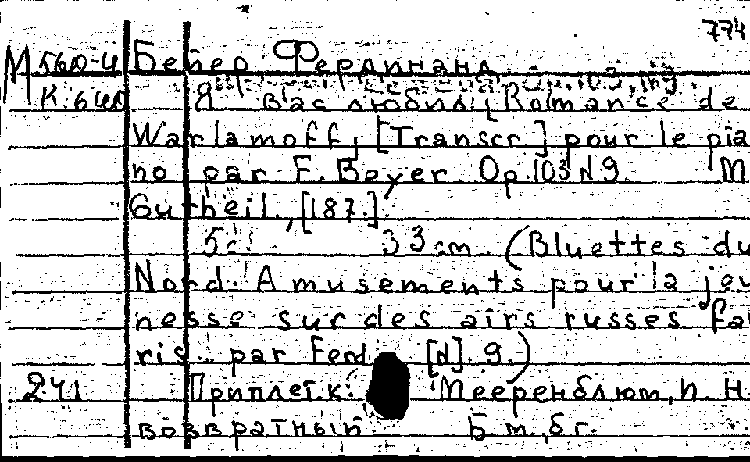 774
М 560-4 Бейер Фердинанд. Op. 103, 169.
К. 640 Я вас любил, Romance de
Warlamoff, [Transcr] pour le pia
no par F. Beyer Op. 103 N 9. M
Gutheil, [187.]
5 с. 33 cm. (Bluettes du
Nord. Amusements pour la jeu
nesse sur des airs russes fa
ris par Ferd. [N] 9.)
241 Приплетк: Мееренблюм, П. Н
возвратный Б. м, б. г.